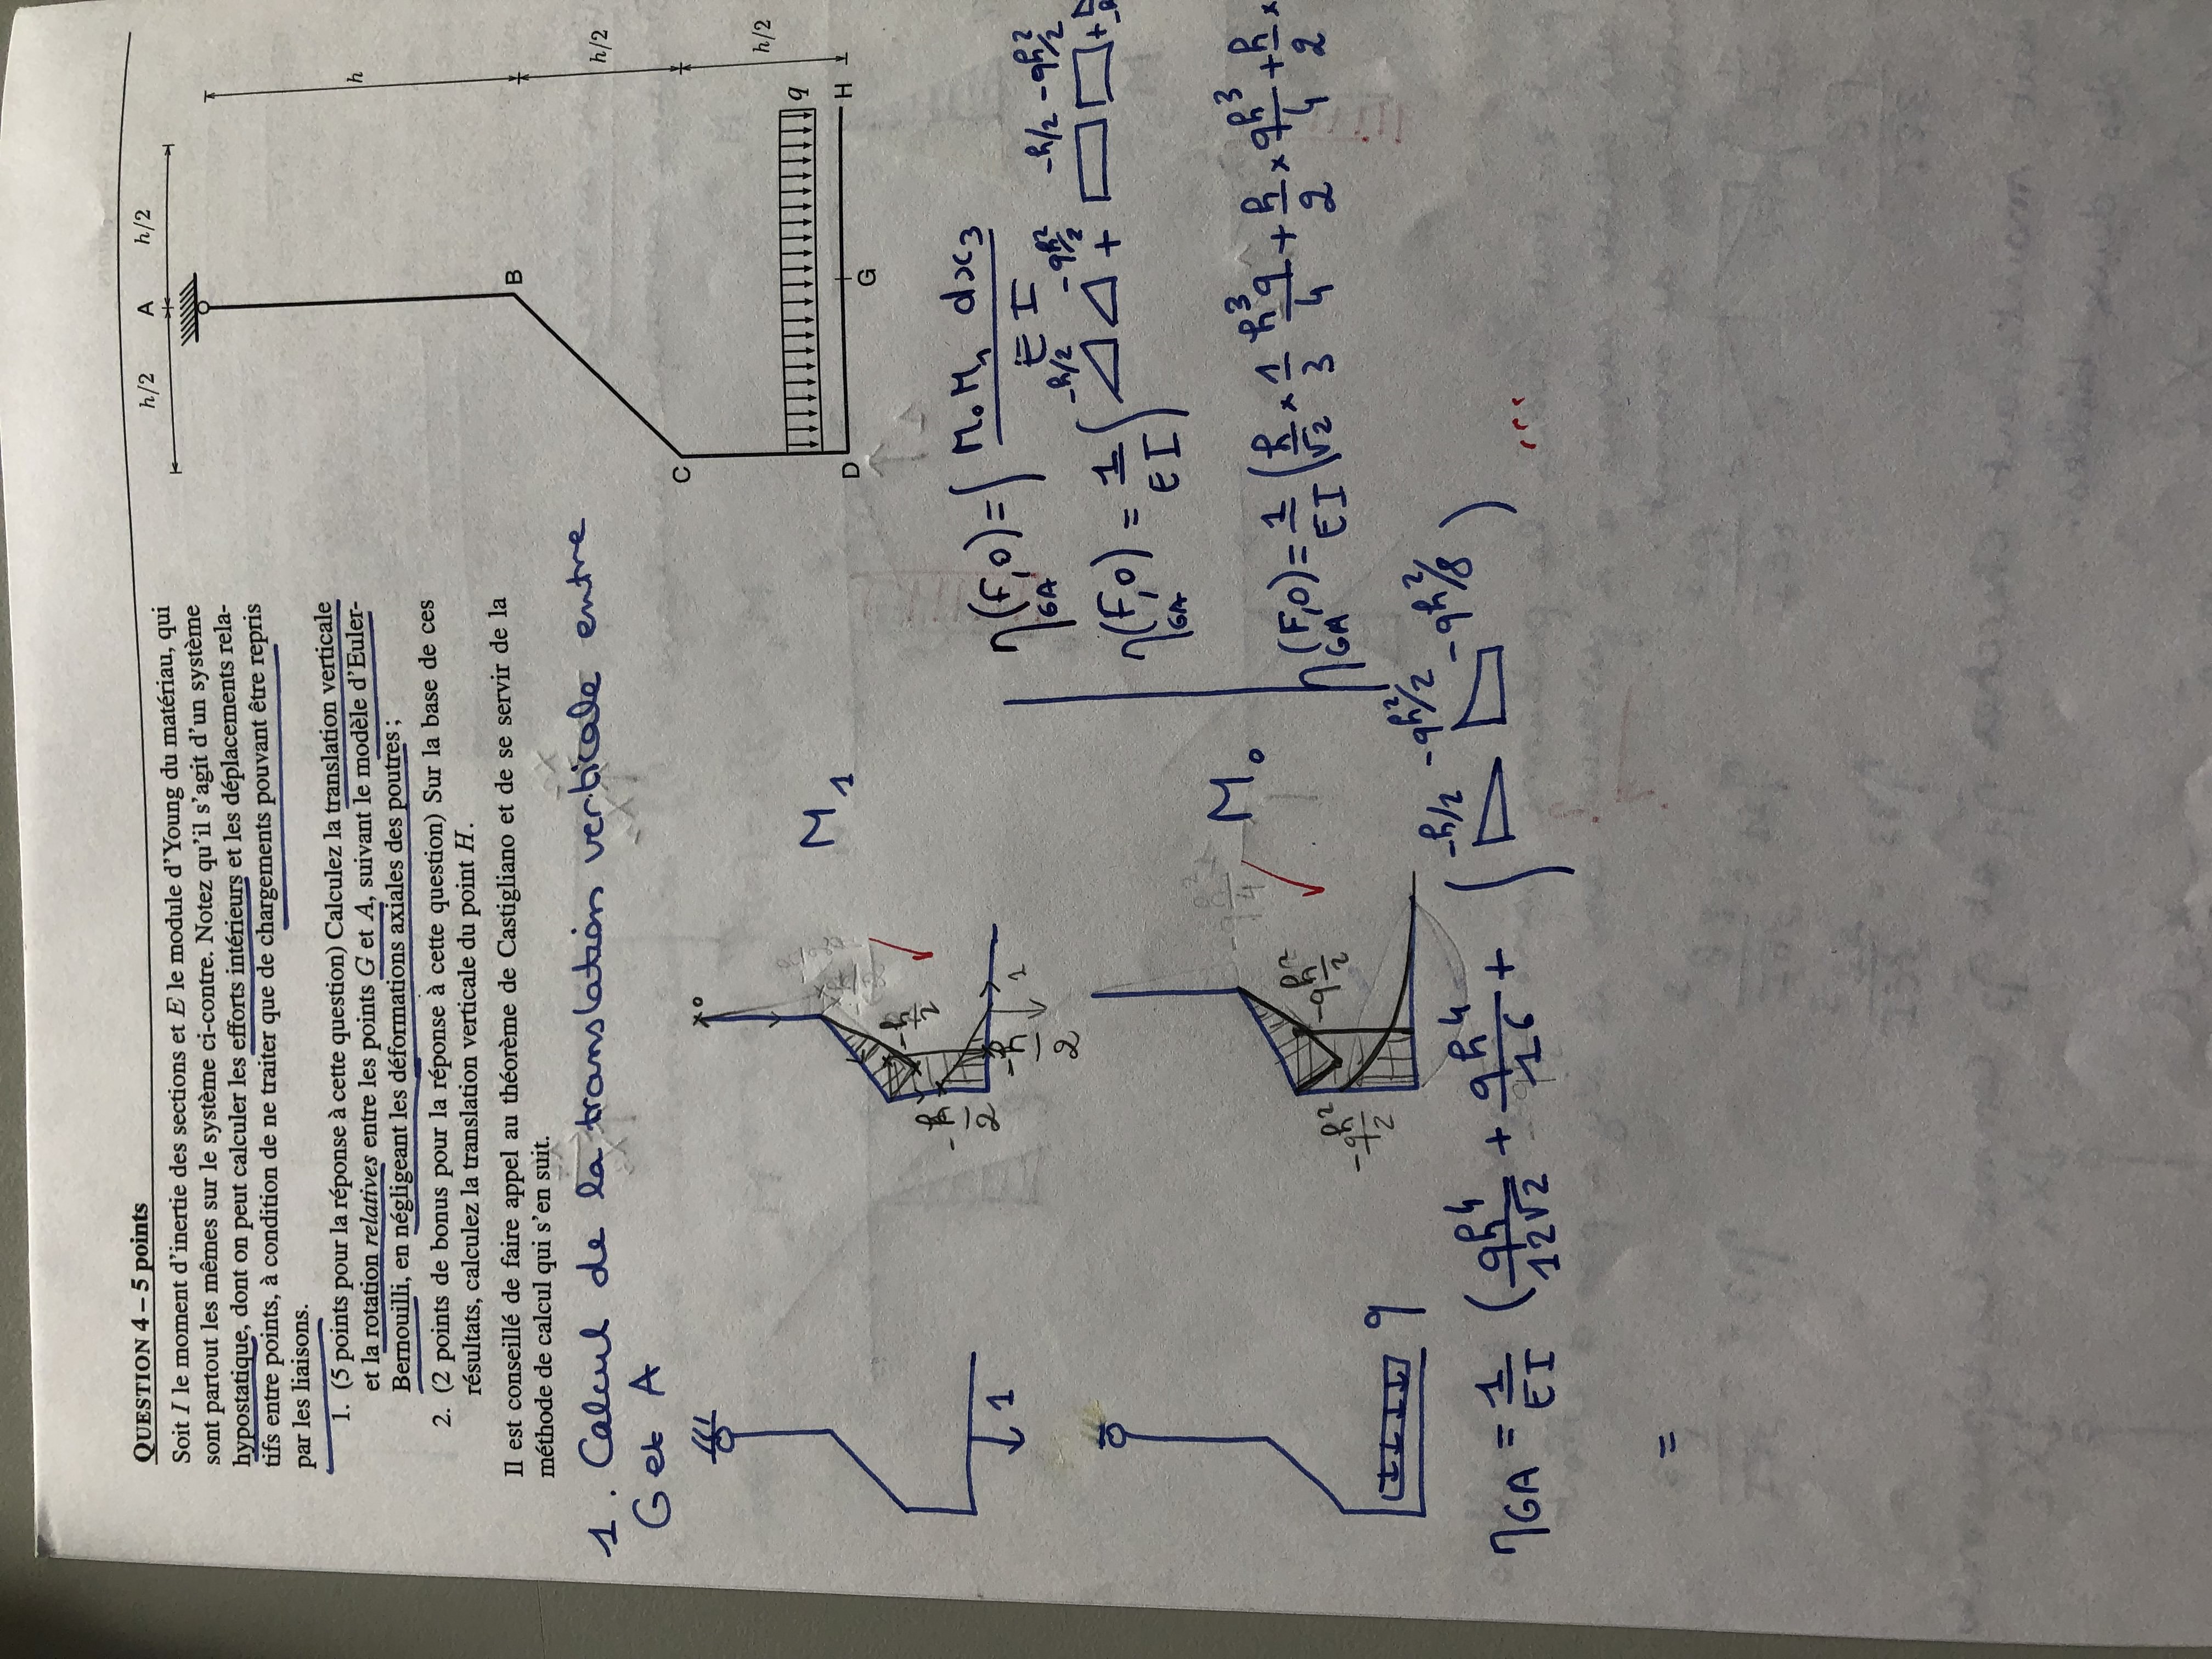 QUESTION 4 – 5 points
Soit I le moment d'inertie des sections et E le module d'Young du matériau, qui
sont partout les mêmes sur le système ci-contre. Notez qu'il s'agit d'un système
hypostatique, dont on peut calculer les efforts intérieurs et les déplacements rela-
tifs entre points, à condition de ne traiter que de chargements pouvant être repris
par les liaisons.
1. (5 points pour la réponse à cette question) Calculez la translation verticale
et la rotation relatives entre les points G et A, suivant le modèle d'Euler-
Bernouilli, en négligeant les déformations axiales des poutres ;
2. (2 points de bonus pour la réponse à cette question) Sur la base de ces
résultats, calculez la translation verticale du point H.
Il est conseillé de faire appel au théorème de Castigliano et de se servir de la
méthode de calcul qui s'en suit.
h/2 A h/2
h
B
h/2
C
h/2
q
D
H
G
1. Calcul de la translation verticale entre
G et A
1
0
-h/2
-h/2
-h/2
1
M1
q
-qh²/2
-qh²/2
M0
η_GA (F,0) = ∫ M0 M1 dx3 / EI
-h/2 -qh²/2 -h/2 -qh²/2
η_GA (F,0) = 1/EI ( + +
η_GA (F,0) = 1/EI ( h/√2 × 1/3 h³q/4 + h/2 × qh³/4 + h/2 ×
-h/2 -qh²/2 -qh²/8
η_GA = 1/EI ( qh⁴/12√2 + qh⁴/16 + ∫ ) ...
=